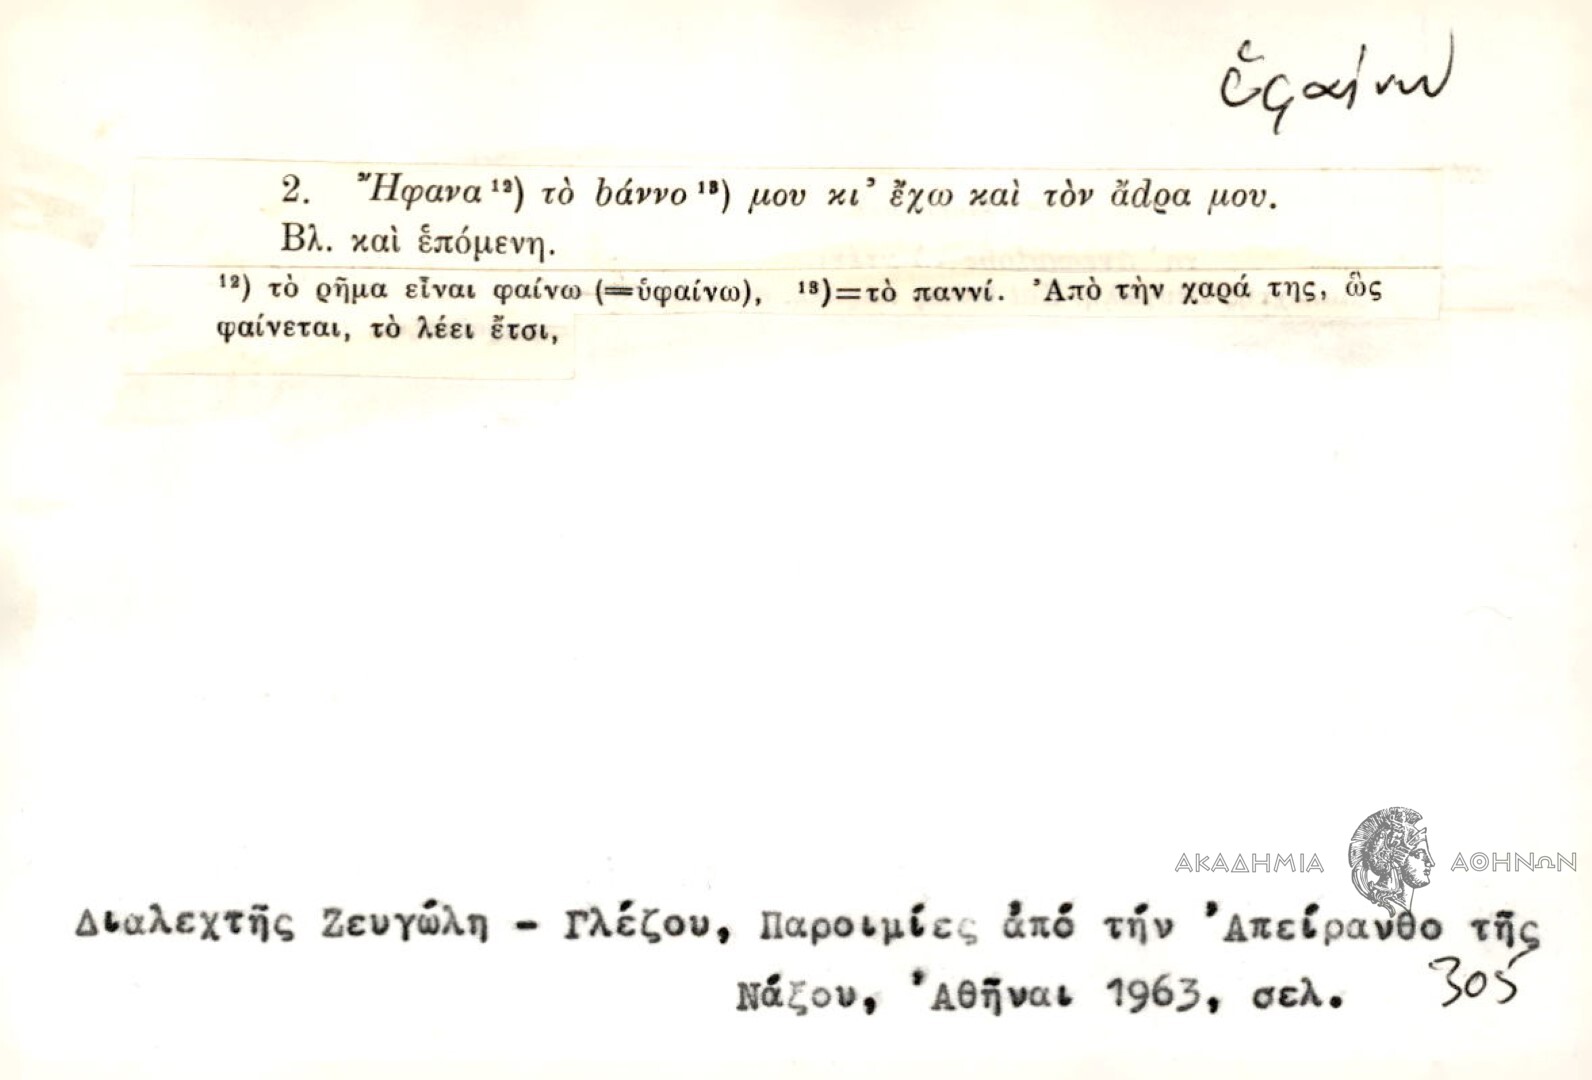 ὑφαίνω
2. Ἤφανα ¹²) τὸ bάννο ¹³) μου κι’ ἔχω καὶ τὸν ἄdρα μου.
Βλ. καὶ ἑπόμενη.
¹²) τὸ ρῆμα εἶναι φαίνω (=ὑφαίνω), ¹³)=τὸ παννί. Ἀπὸ τὴν χαρά της, ὣς
φαίνεται, τὸ λέει ἔτσι,
ΑΚΑΔΗΜΙΑ ΑΘΗΝΩΝ
Διαλεχτῆς Ζευγώλη - Γλέζου, Παροιμίες ἀπό τήν Ἀπείρανθο τῆς
Νάξου, Ἀθῆναι 1963, σελ. 305